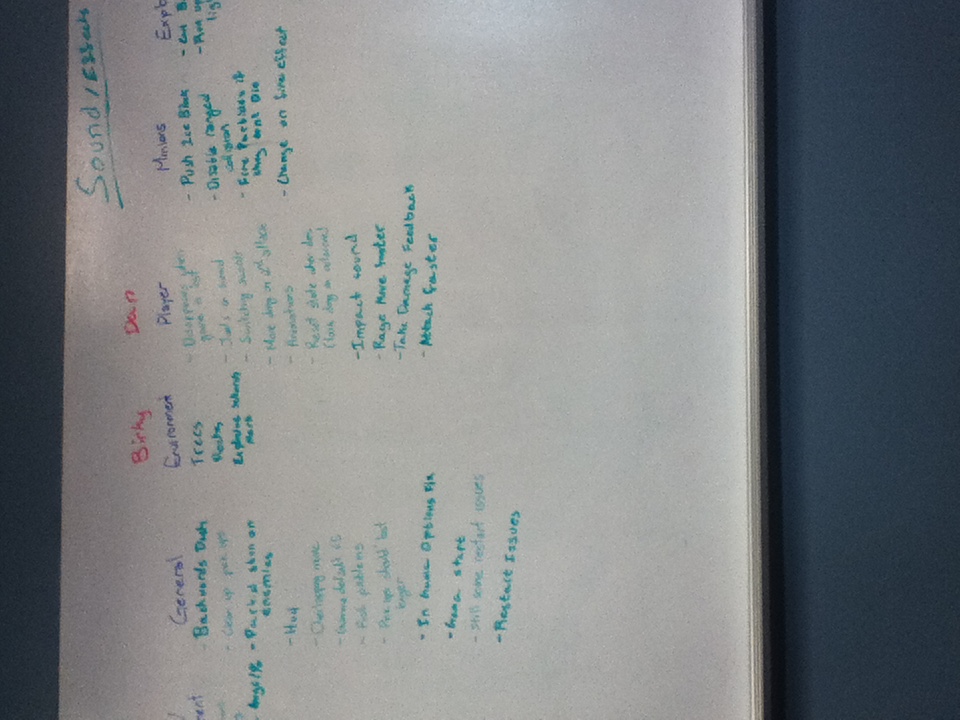 Sound / Effects
Birky
Dan
General
- Backwards Dash
- Clean up pick ups
- Partial stun on
enemies
- Hud
- Overlapping
- Game default
- problems
- Pick ups should last
longer
- In Game Options Fix
- Game start
- Still some restart issues
- Restart Issues
Environment
Trees
Rocks
Explosive
Player
- Disappears when
game is lost
- sound
- Switching swords
- More dmg on 2nd attack
- Animations
- Reset state after
dmg on
- Impact sound
- Rage Move faster
- Take Damage Feedback
- Attack faster
Minions
- Push Ice Block
- Disable ranged
collision
- Fire Particles if
they don't Die
- Change on fire effect